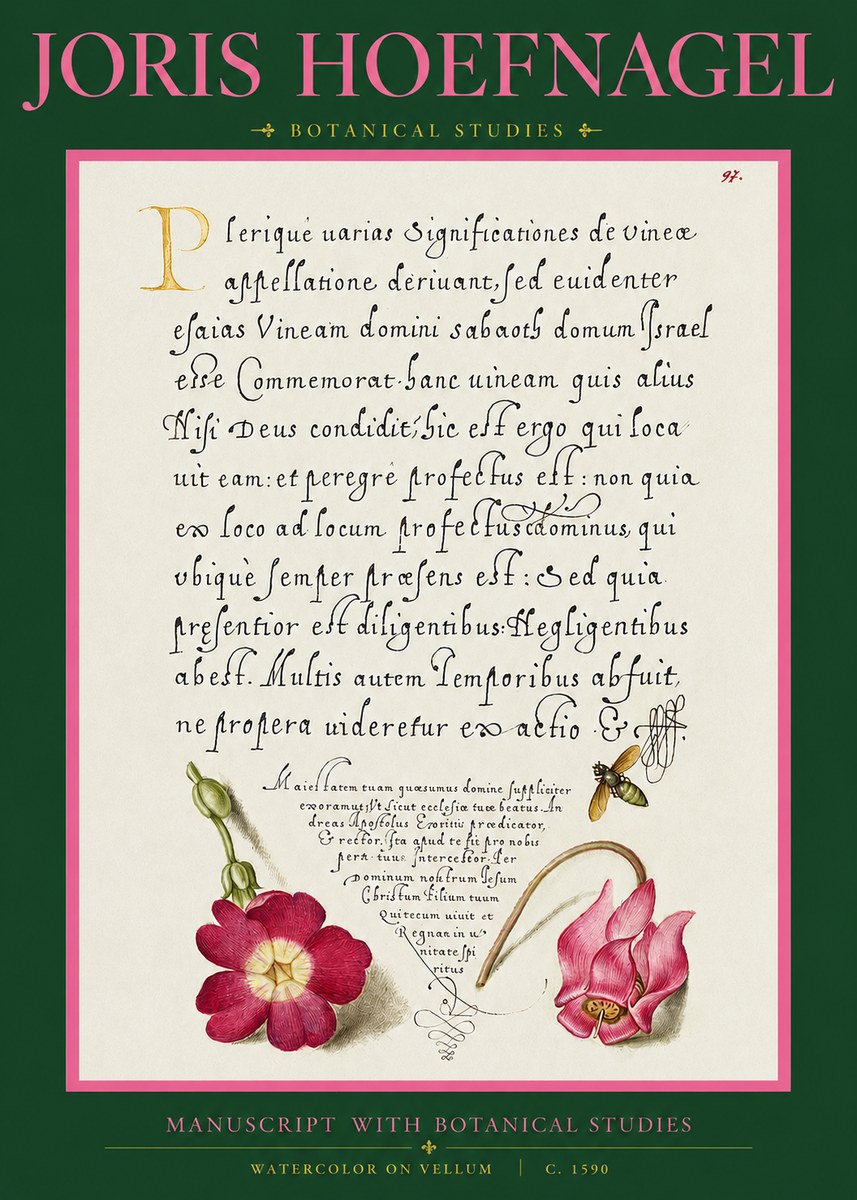 JORIS HOEFNAGEL
BOTANICAL STUDIES
97.
Plerique uarias Significationes de vineæ
appellatione deriuant, sed euidenter
esaias Vineam domini sabaoth domum Israel
esse Commemorat. hanc uineam quis alius
Nisi Deus condidit, hic est ergo qui loca
uit eam: et peregrè profectus est: non quia
ex loco ad locum profectus dominus, qui
vbiquè semper præsens est: Sed quia
pręsentior est diligentibus: Negligentibus
abest. Multis autem Temporibus abfuit,
ne propera uideretur exactio &
Maiestatem tuam quæsumus domine suppliciter
exoramus, Vt sicut ecclesiæ tuæ beatus. An
dreas Apostolus prædicator,
& rector. Ita apud te sit pro nobis
tuus. Intercessor. Per
Dominum nostrum Iesum
Christum Filium tuum
Qui tecum uiuit et
Regnan in u
nitate spi
ritus
MANUSCRIPT WITH BOTANICAL STUDIES
WATERCOLOR ON VELLUM | C. 1590